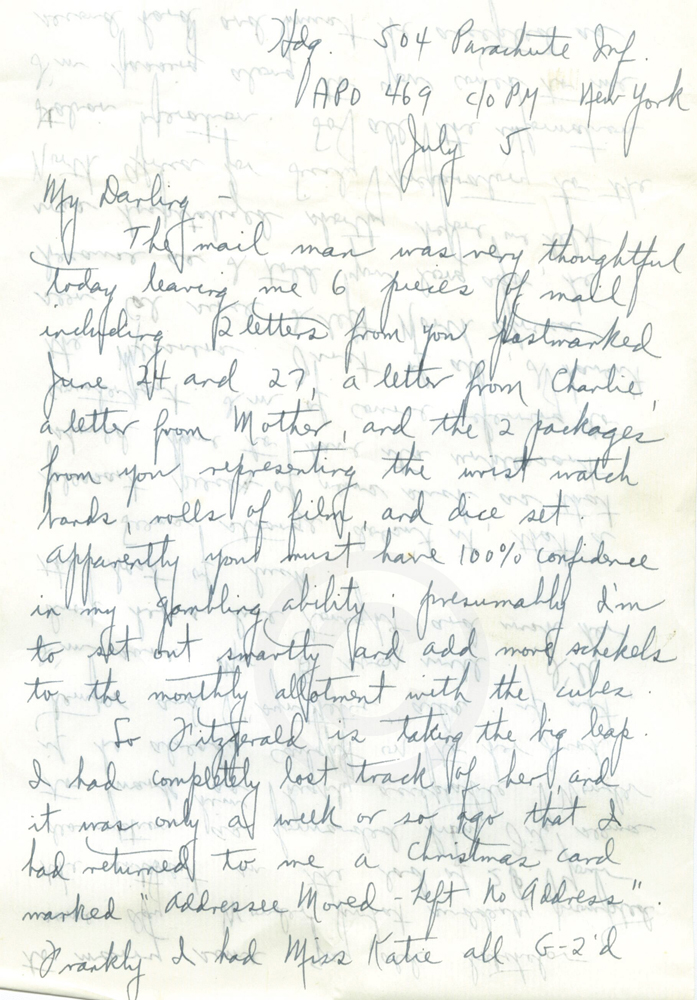 Hdq. 504 Parachute Inf.
APO 469 c/o PM New York
July 5
My Darling -
The mail man was very thoughtful
today leaving me 6 pieces of mail
including 2 letters from you postmarked
June 24 and 27, a letter from Charlie,
a letter from Mother, and the 2 packages
from you representing the wrist watch
bands, rolls of film, and dice set.
Apparently you must have 100% confidence
in my gambling ability; presumably I'm
to set out smartly and add more schekels
to the monthly allotment with the cubes.
So Fitzgerald is taking the big leap.
I had completely lost track of her, and
it was only a week or so ago that I
had returned to me a Christmas card
marked "Addressee Moved - Left No Address".
Frankly I had Miss Katie all G-2'd